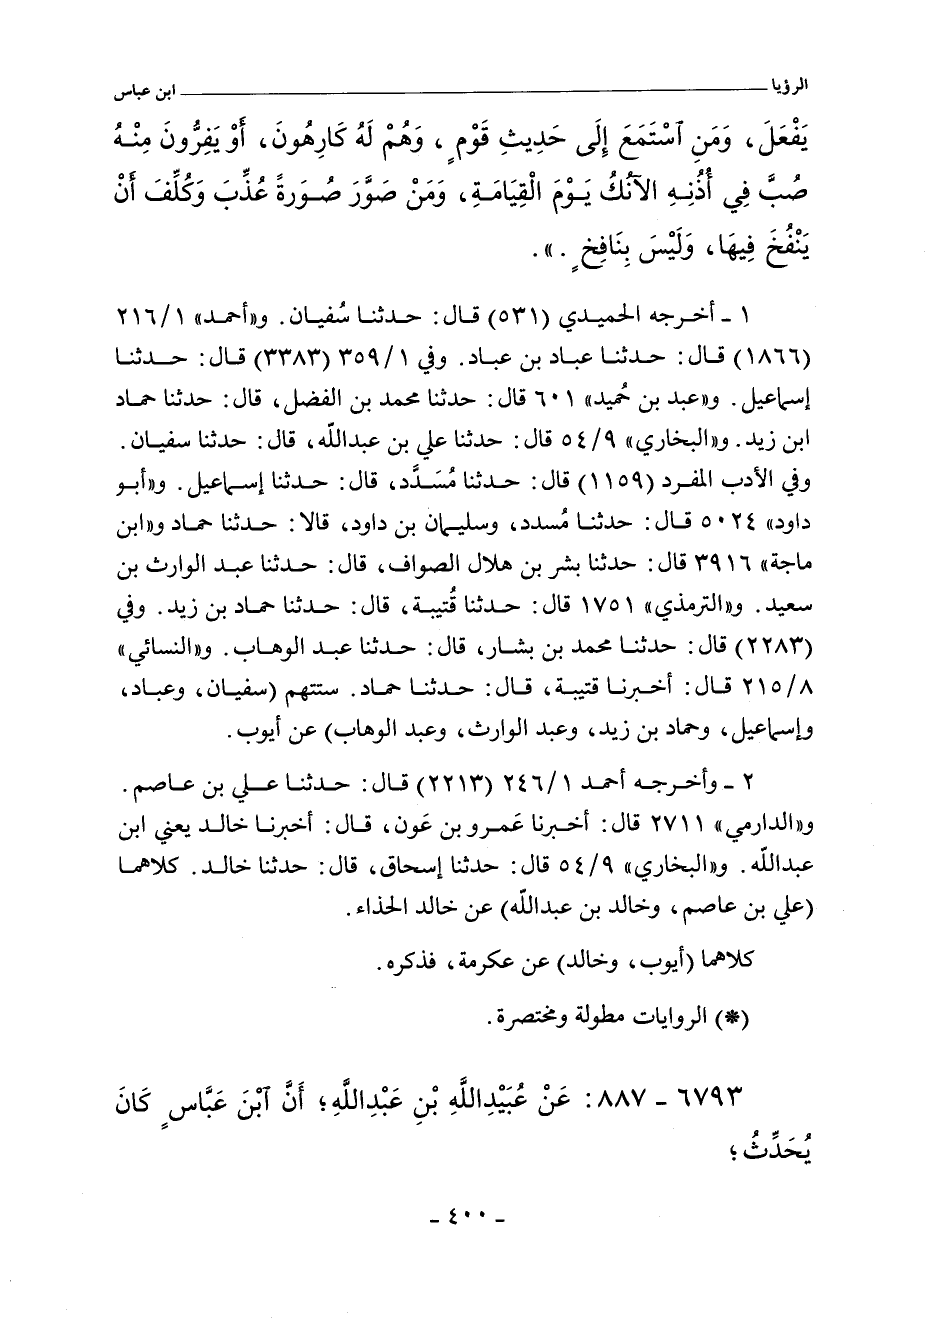 الرؤيا ــــــــــ ابن عباس
يَفْعَلَ، وَمَنِ ٱسْتَمَعَ إِلَى حَدِيثِ قَوْمٍ، وَهُمْ لَهُ كَارِهُونَ، أَوْ يَفِرُّونَ مِنْهُ
صُبَّ فِي أُذُنِهِ الآنُكُ يَوْمَ الْقِيَامَةِ، وَمَنْ صَوَّرَ صُورَةً عُذِّبَ وَكُلِّفَ أَنْ
يَنْفُخَ فِيهَا، وَلَيْسَ بِنَافِخٍ.».
١ - أخرجه الحميدي (٥٣١) قال: حدثنا سُفيان. و«أحمد» ٢١٦/١
(١٨٦٦) قال: حدثنا عباد بن عباد. وفي ٣٥٩/١ (٣٣٨٣) قال: حدثنا
إسماعيل. و«عبد بن حُميد» ٦٠١ قال: حدثنا محمد بن الفضل، قال: حدثنا حماد
ابن زيد. و«البخاري» ٥٤/٩ قال: حدثنا علي بن عبدالله، قال: حدثنا سفيان.
وفي الأدب المفرد (١١٥٩) قال: حدثنا مُسَدَّد، قال: حدثنا إسماعيل. و«أبو
داود» ٥٠٢٤ قال: حدثنا مُسدد، وسليمان بن داود، قالا: حدثنا حماد و«ابن
ماجة» ٣٩١٦ قال: حدثنا بشر بن هلال الصواف، قال: حدثنا عبد الوارث بن
سعيد. و«الترمذي» ١٧٥١ قال: حدثنا قُتيبة، قال: حدثنا حماد بن زيد. وفي
(٢٢٨٣) قال: حدثنا محمد بن بشار، قال: حدثنا عبد الوهاب. و«النسائي»
٢١٥/٨ قال: أخبرنا قتيبة، قال: حدثنا حماد. ستتهم (سفيان، وعباد،
وإسماعيل، وحماد بن زيد، وعبد الوارث، وعبد الوهاب) عن أيوب.
٢ - وأخرجه أحمد ٢٤٦/١ (٢٢١٣) قال: حدثنا علي بن عاصم.
و«الدارمي» ٢٧١١ قال: أخبرنا عَمرو بن عَون، قال: أخبرنا خالد يعني ابن
عبدالله. و«البخاري» ٥٤/٩ قال: حدثنا إسحاق، قال: حدثنا خالد. كلاهما
(علي بن عاصم، وخالد بن عبدالله) عن خالد الحذاء.
كلاهما (أيوب، وخالد) عن عكرمة، فذكره.
(*) الروايات مطولة ومختصرة.
٦٧٩٣ - ٨٨٧: عَنْ عُبَيْدِاللَّهِ بْنِ عَبْدِاللَّهِ؛ أَنَّ ٱبْنَ عَبَّاسٍ كَانَ
يُحَدِّثُ؛
- ٤٠٠ -